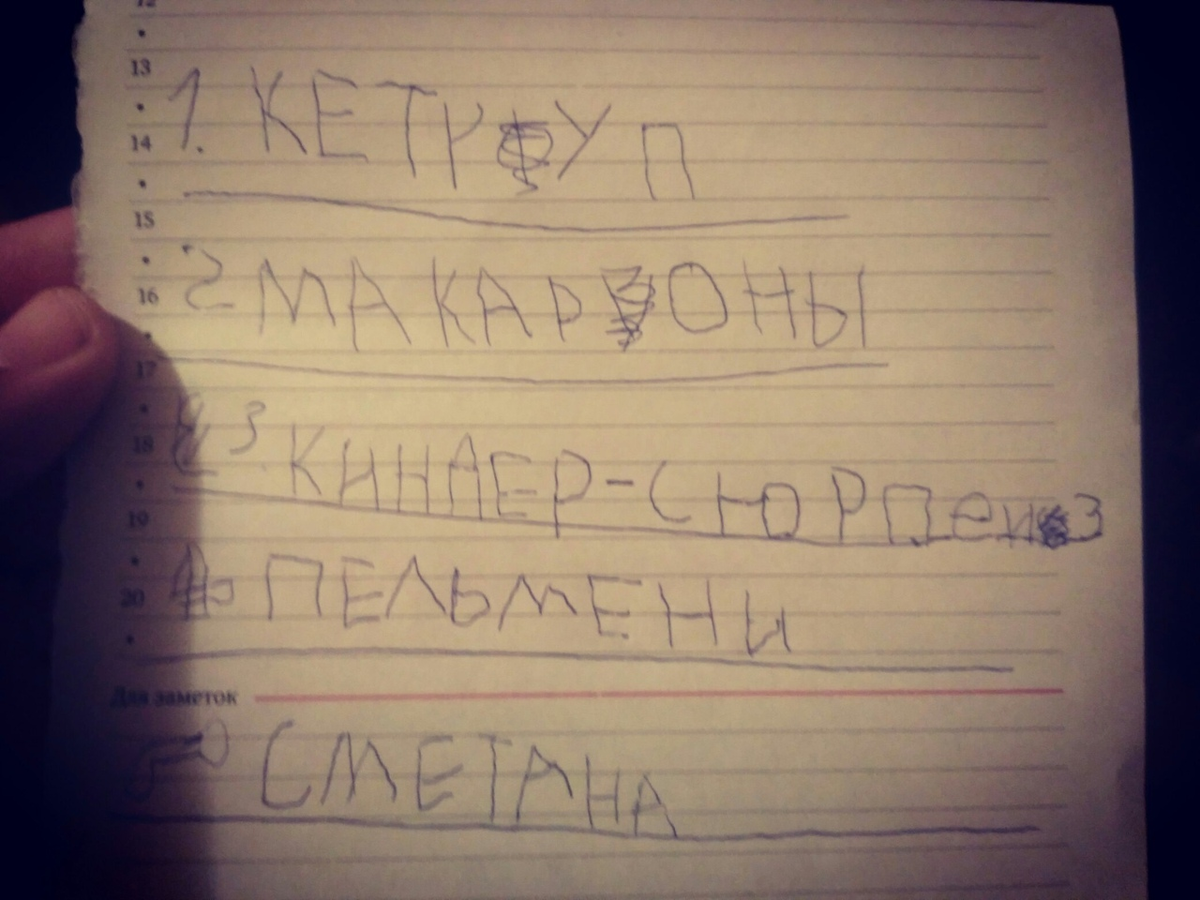 12
13
1. КЕТЧУП
14
15
2 МАКАРОНЫ
16
17
3. КИНДЕР-СЮРПеиз
18
19
ПЕЛЬМЕНИ
20
Для заметок
5 СМЕТАНА